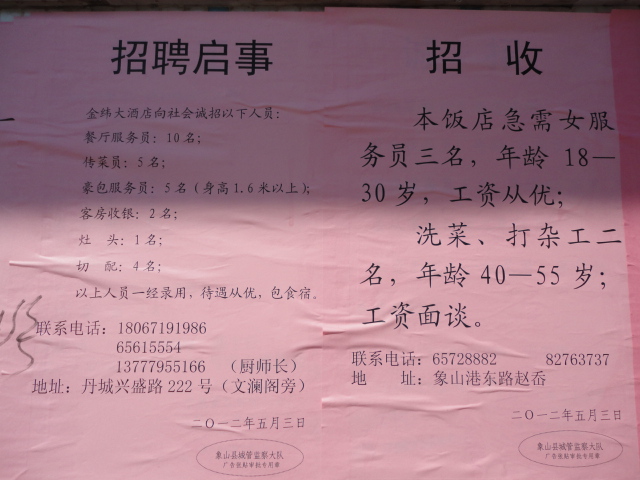 招聘启事
金纬大酒店向社会诚招以下人员：
餐厅服务员：10名；
传菜员：5名；
豪包服务员：5名（身高1.6米以上）；
客房收银：2名；
灶 头：1名；
切 配：4名；
以上人员一经录用，待遇从优，包食宿。
联系电话：18067191986
65615554
13777955166 （厨师长）
地址：丹城兴盛路222号（文澜阁旁）
二○一二年五月三日
象山县城管监察大队
广告张贴审批专用章
招 收
本饭店急需女服
务员三名，年龄 18—
30 岁，工资从优；
洗菜、打杂工二
名，年龄 40—55 岁；
工资面谈。
联系电话：65728882 82763737
地 址：象山港东路赵岙
二○一二年五月三日
象山县城管监察大队
广告张贴审批专用章